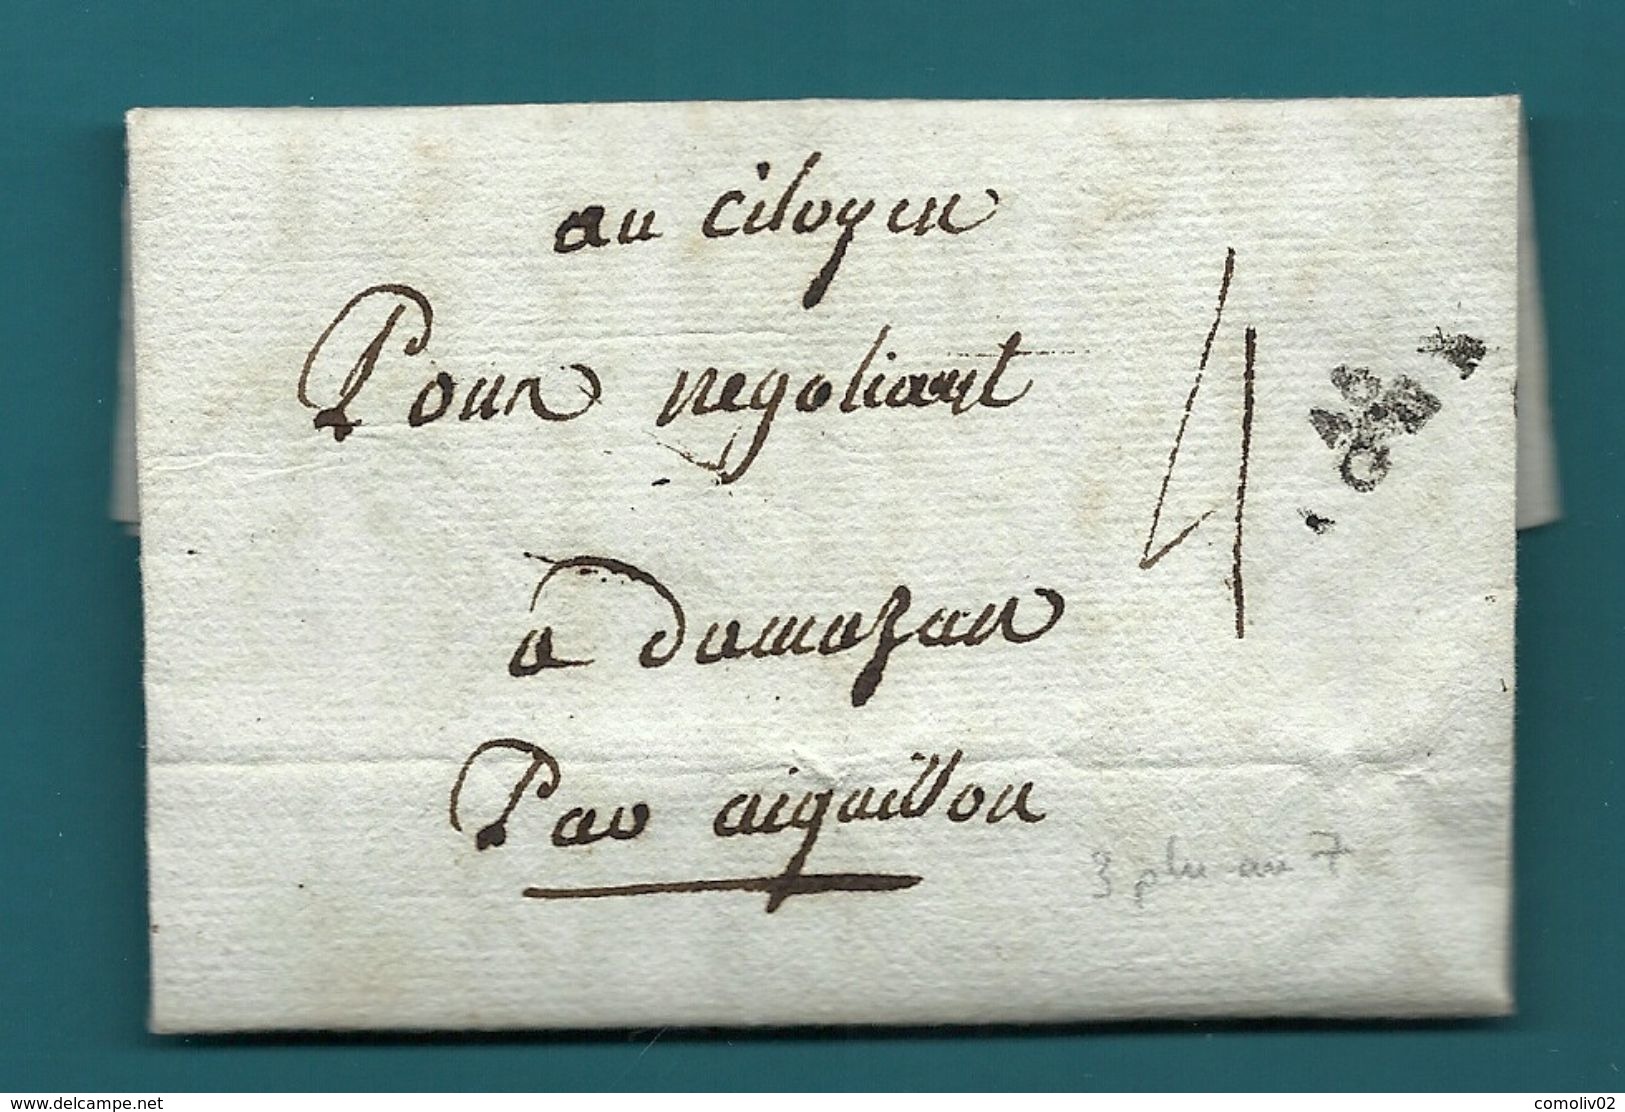 au Citoyen
Pour negotiant
4
a Damazan
Par aiguillon
3 plu au 7
www.delcampe.net
comoliv02